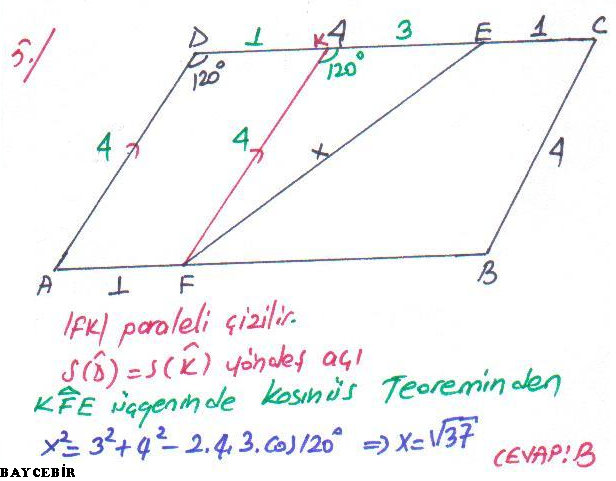 5./
D 1 K 4 3 E 1 C
120° 120°
4 4 x 4
A 1 F B
|FK| paraleli çizilir.
s(D̂) = s(K̂) yöndeş açı
KF̂E üçgeninde kosinüs Teoreminden
x² = 3² + 4² - 2.4.3.cos120° ⇒ x = √37
CEVAP: B
BAYCEBİR